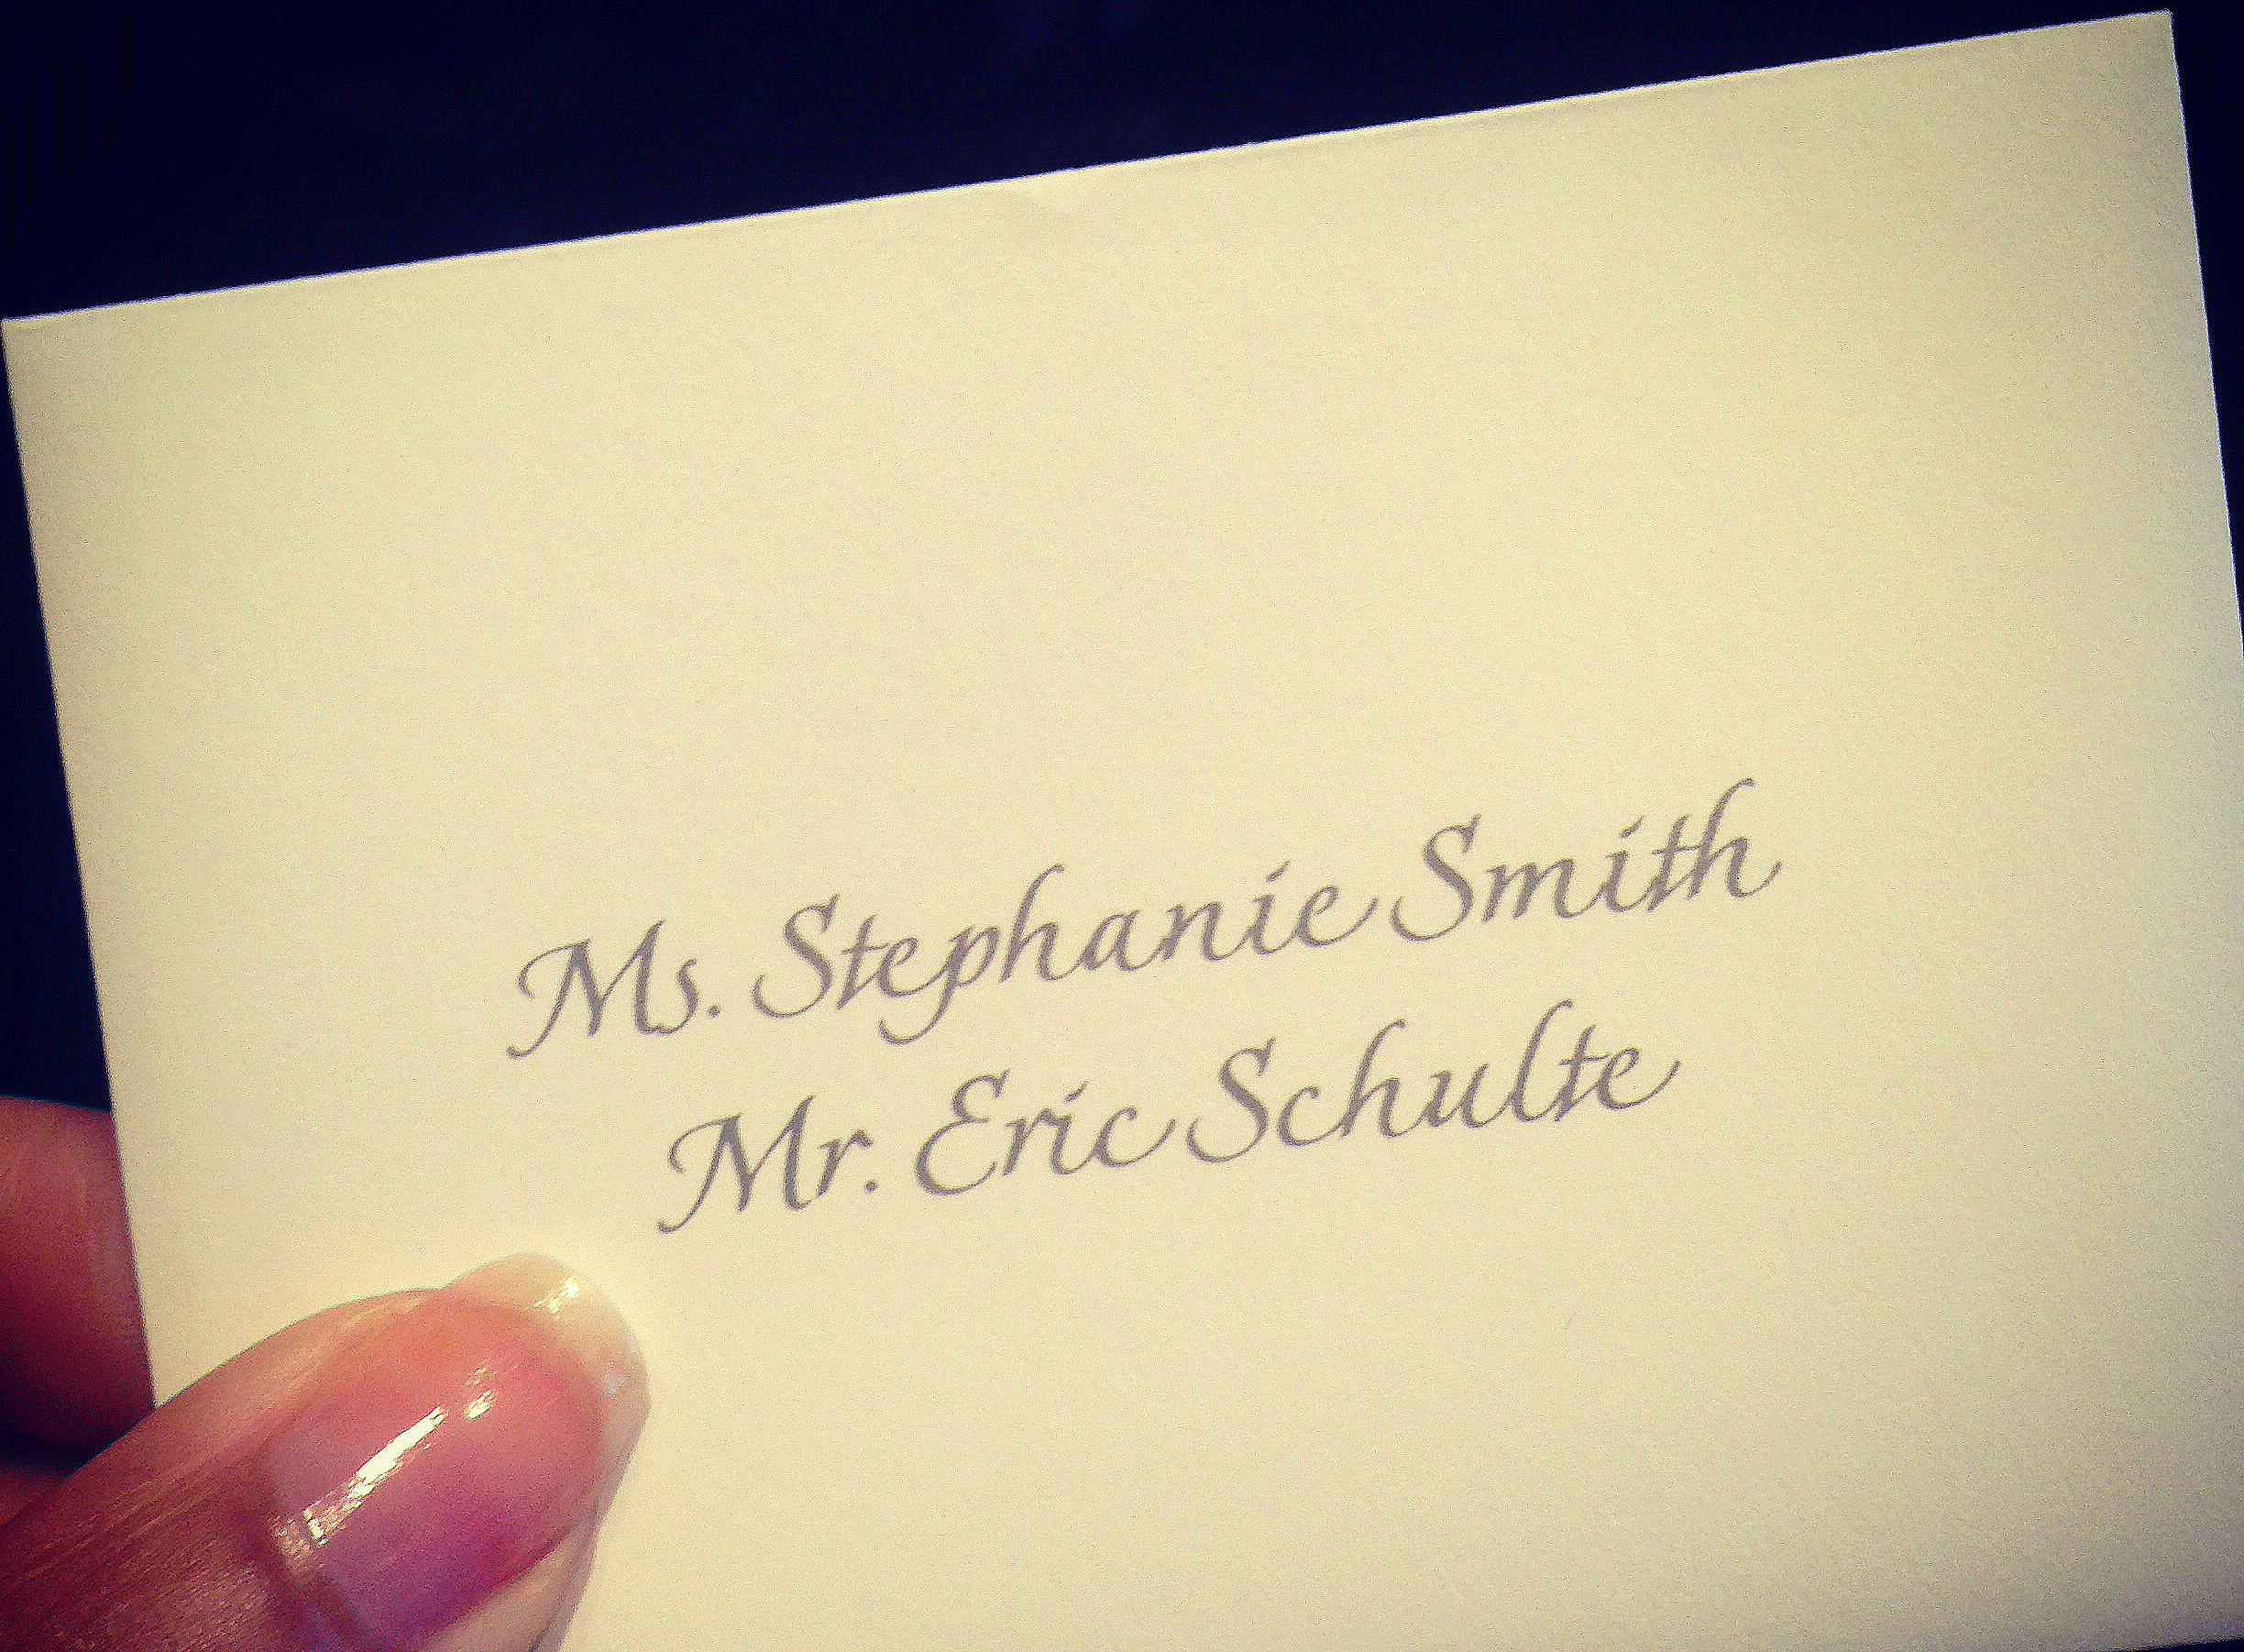 Ms. Stephanie Smith
Mr. Eric Schulte